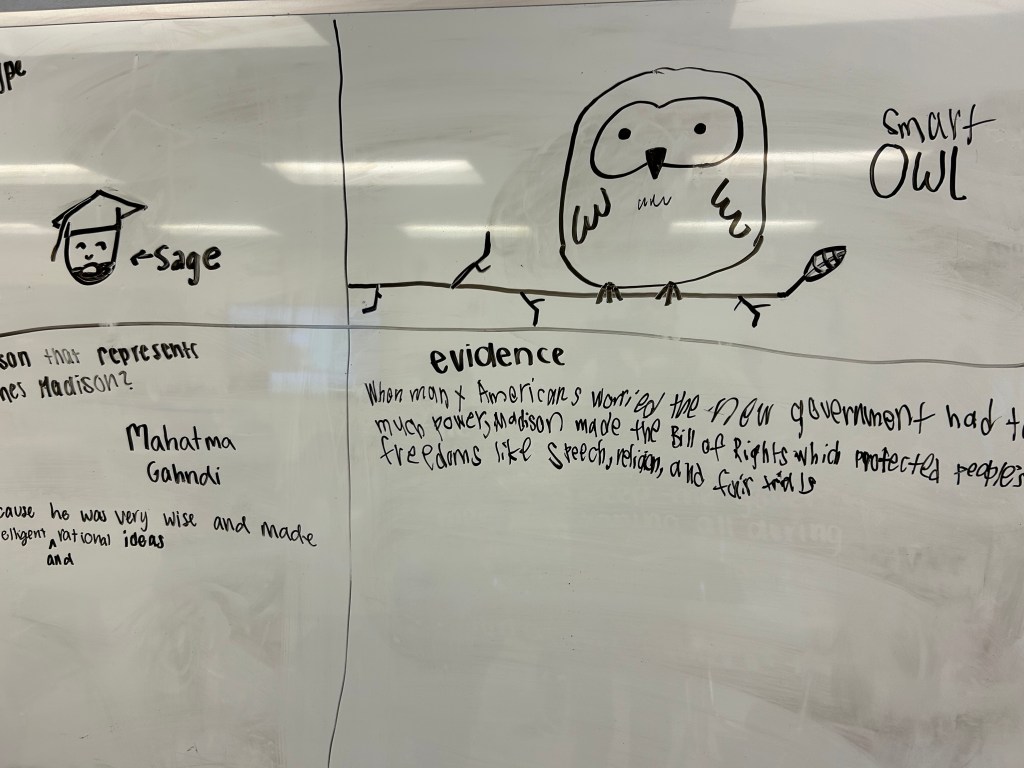 ype
←sage
smart
OWL
son that represents
mes Madison?
Mahatma
Gahndi
cause he was very wise and made
elligent ^ rational ideas
and
evidence
When many Americans worried the new government had to
much power, Madison made the Bill of Rights which protected people's
freedoms like speech, religion, and fair trials